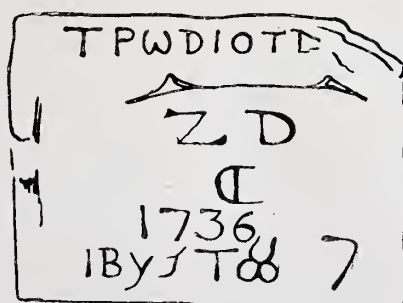 TPWDIOTD
Z D
C
1736
1By
7